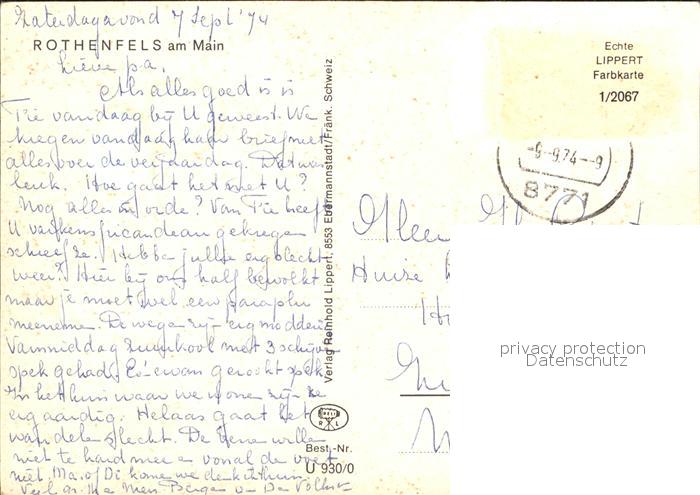 Zaterdagavond 7 Sept '74
ROTHENFELS am Main
Lieve pa,
Als alles goed is is
Tie vandaag bij U geweest. We
kregen vandaag haar brief met
alles over de verjaardag. Dat was
leuk. Hoe gaat het met U?
Nog alles in orde? Van Tie heeft
U varkensfricandeau gekregen
schreef ze. Hebben jullie erg slecht
weer? Hier bij ons half bewolkt
maar je moet wel een paraplu
meenemen. De wegen zijn erg modderig
Vanmiddag zuurkool met 3 schijven
spek gehad, van gerookt spek
In het huis waar we wonen zijn ze
erg aardig. Helaas gaat het
wandelen slecht. De benen willen
niet te hard mee en vooral de voet
niet. Ma. of Di komen we denk ik thuis
Veel gr. Ma
Verlag Reinhold Lippert, 8553 Ebermannstadt/Fränk. Schweiz
R L
Best.-Nr.
U 930/0
Echte
LIPPERT
Farbkarte
1/2067
-9.74--9
8771
Huize
privacy protection
Datenschutz